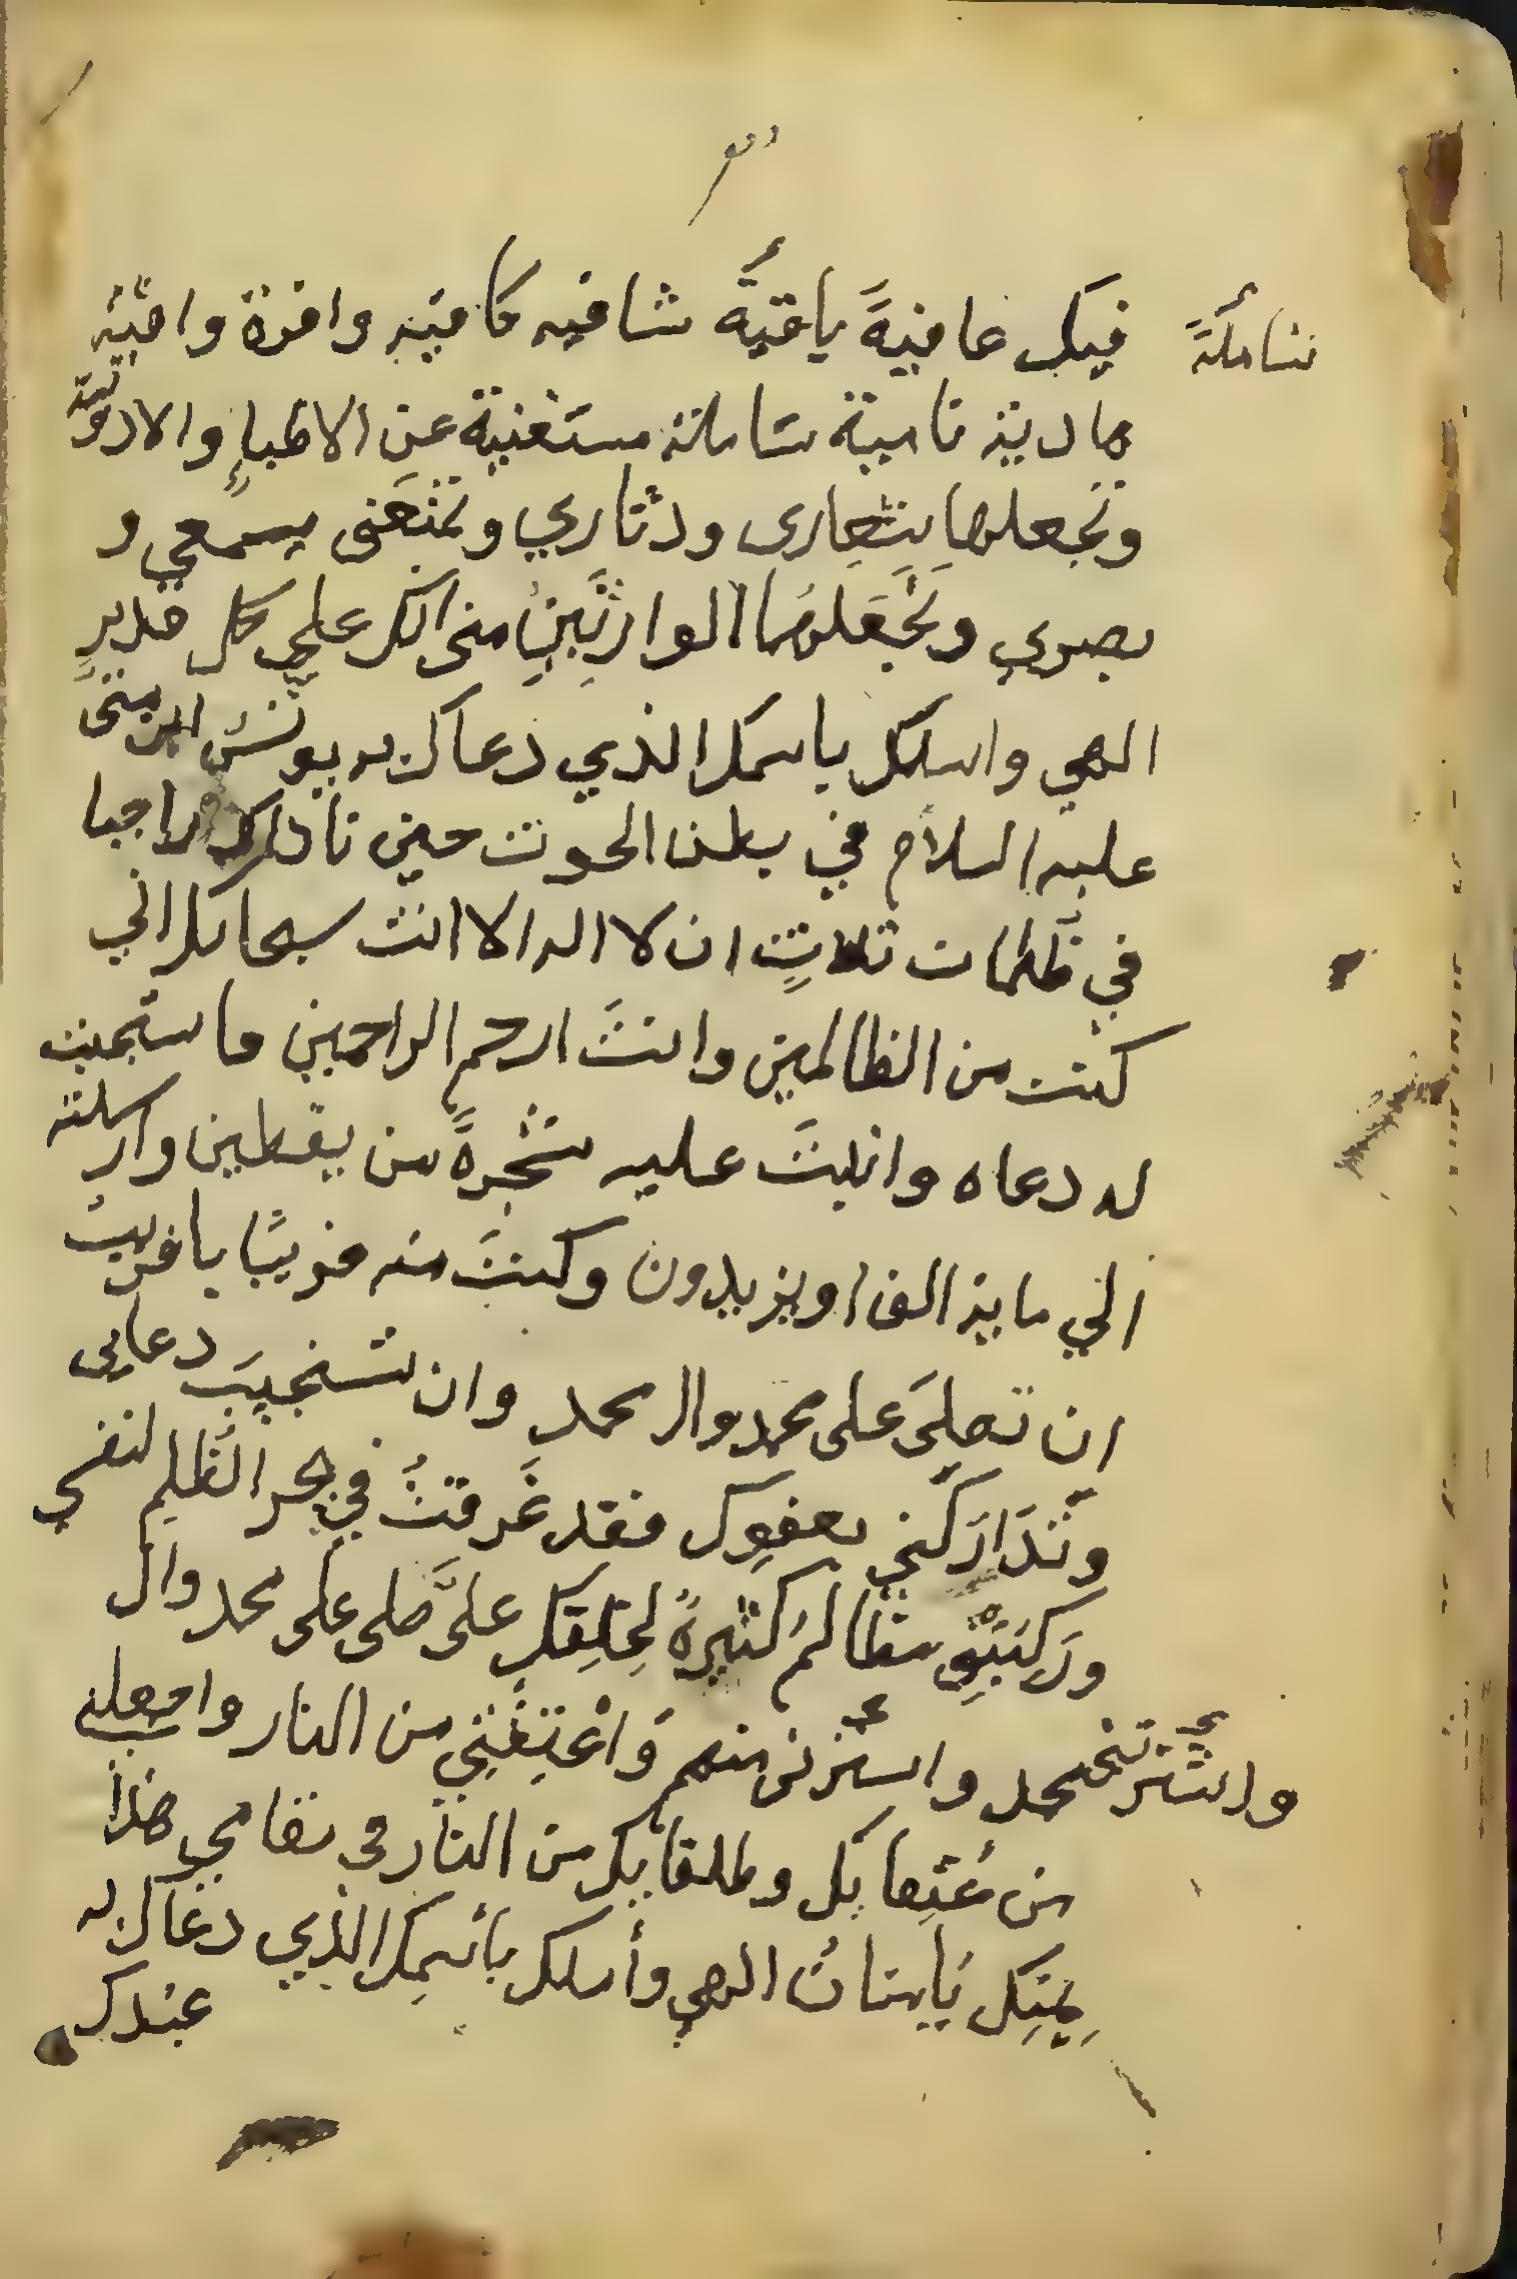 شاملةً
فيك عافيةً باقيةً شافيه كافيه وافرة وافيه
هادية نامية شاملة مستغنية عن الاطباءِ والادوية
وتجعلها شِعارى ودثاري وتمتعَنى بسمعي و
بصري وتجعَلهُما الوارِثَينِ منى انك على كل قديرٍ
الهي واسلك باسمك الذي دعاك به يونسُ ابن متىً
عليه السلام في بطن الحوت حين ناداك راجيا
في ظلمات ثلاثٍ ان لا اله الا انت سبحانك اني
كنت من الظالمين وانتَ ارحم الراحمين فاستجبت
له دعاه وانبتَ عليه شجرةً من يقطين وارسلته
الي ماية الف او يزيدون وكنتَ منه قريبًا يا قريب
ان تصلِىَ على محمد وال محمد وان تستجيبَ دعايى
وتَدَارَكَني بعفوِك فقد غَرقتُ في بحر الظُلمِ لنفسي
ورَكبَتنِى مظالمُ كثيرةً لخلقِك علىَّ صلى على محمد وال
محمد واسترنى منهم وَاعْتِقْنِي من النار واجعلنى
من عُتقايك وطلقايك من النار في مقامي هذا
بِمَنِّك يا منانُ الهي وأسلك بأسمِك الذي دعاك به
عبدك